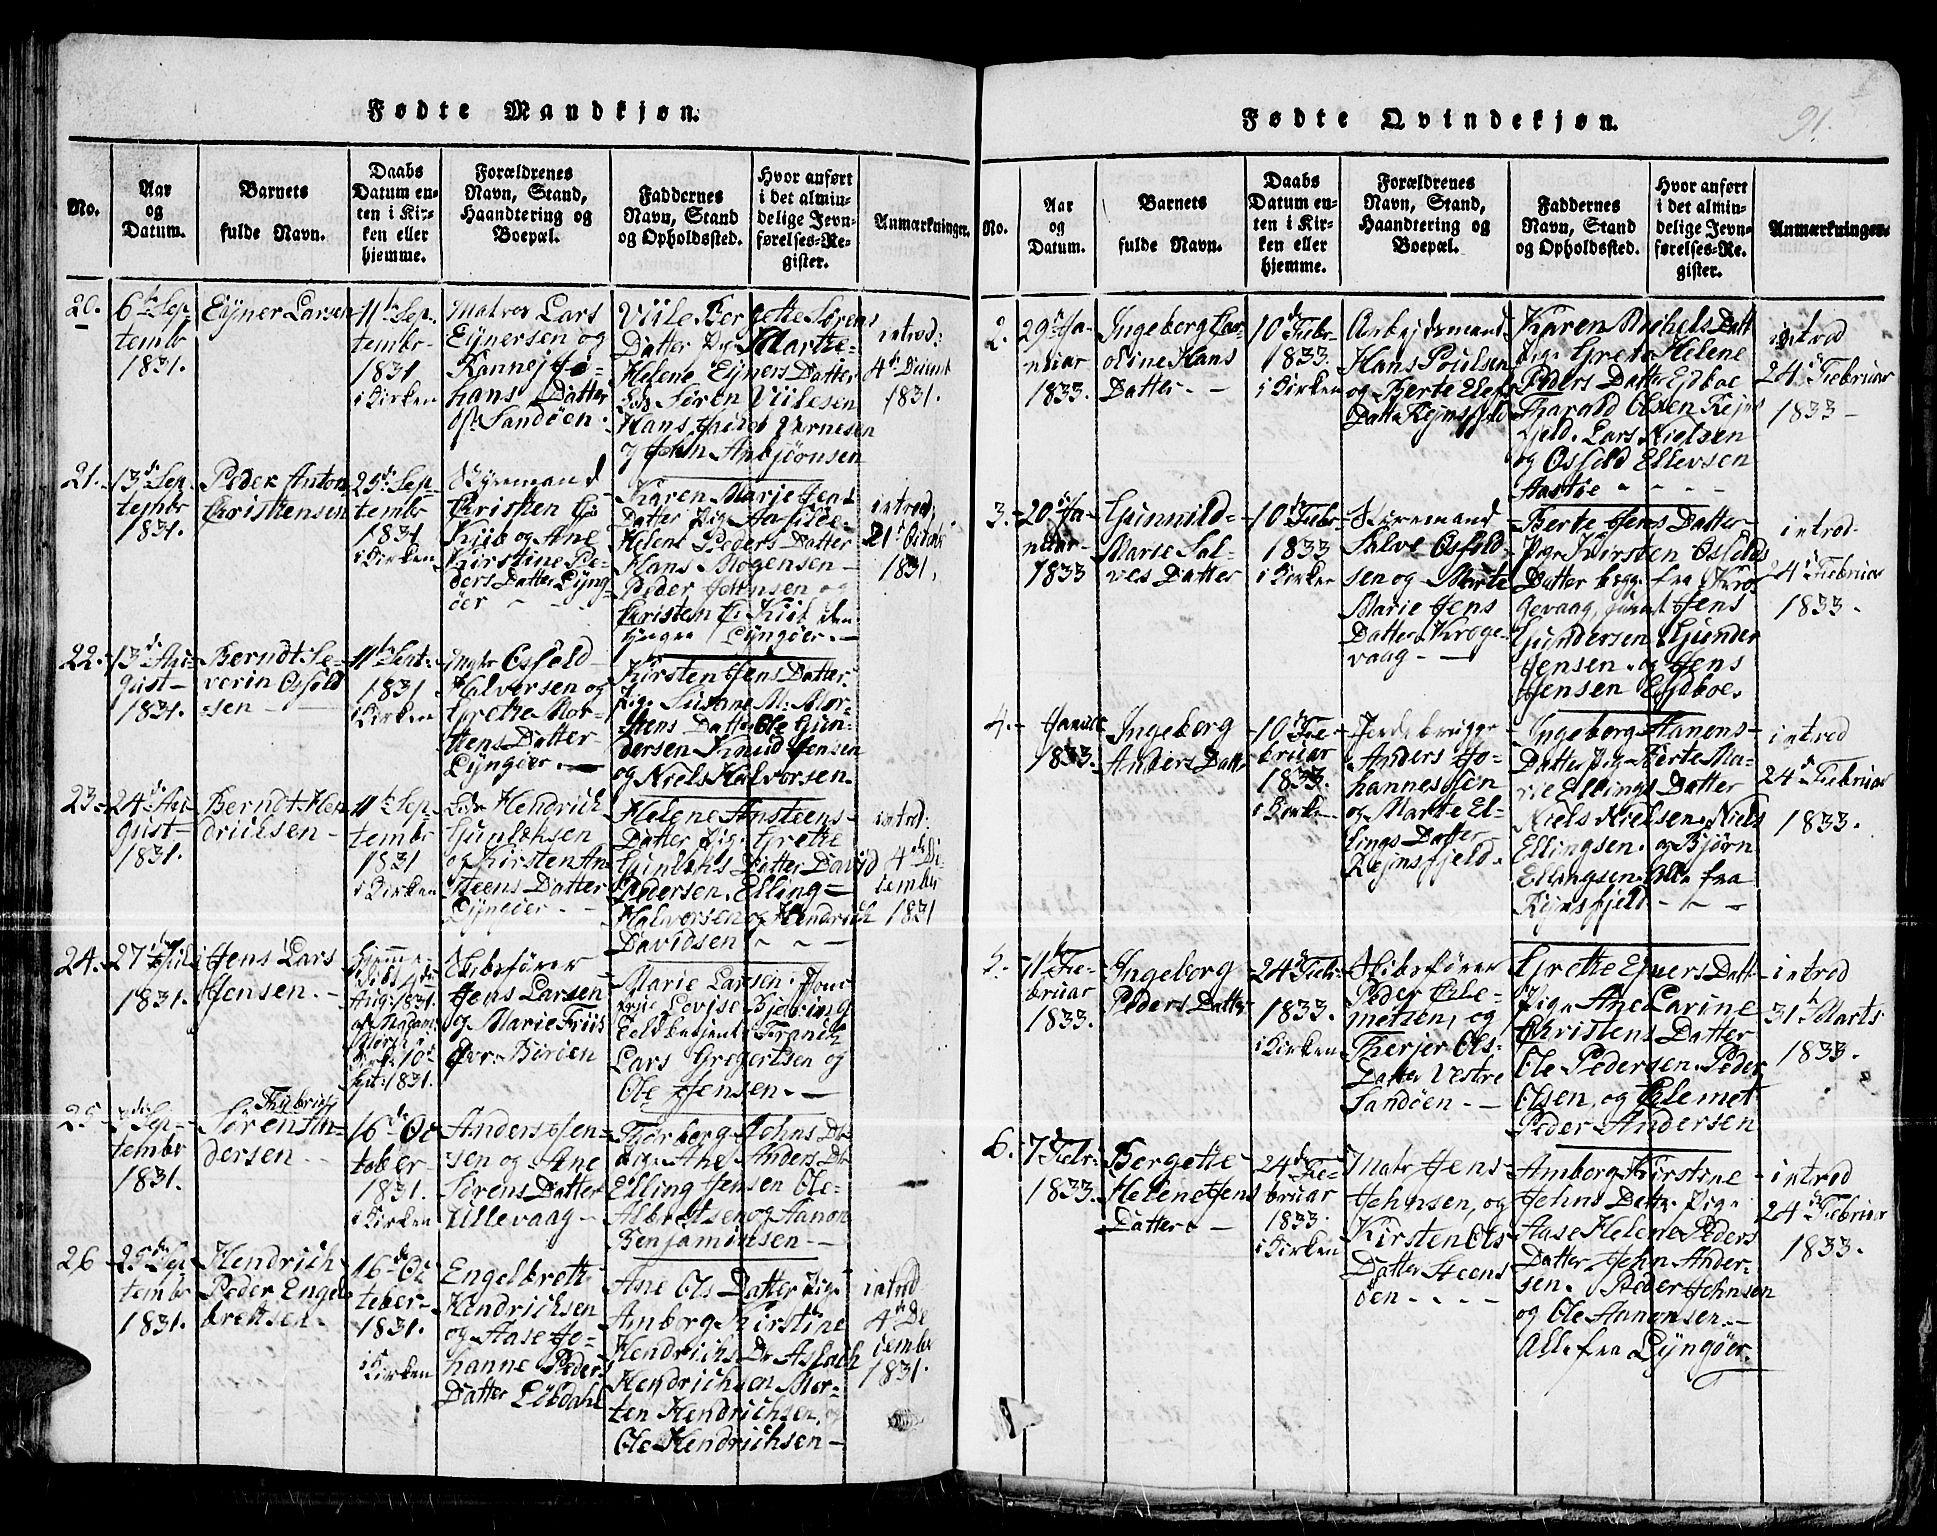 Fødte Mandkjøn.
No.
Aar
og
Datum.
Barnets
fulde Navn.
Daabs
Datum en-
ten i Kir-
ken eller
hjemme.
Forældrenes
Navn, Stand,
Haandtering og
Boepæl.
Faddernes
Navn, Stand
og Opholdssted.
Hvor anført
i det almin-
delige Jevn-
førelses-Re-
gister.
Anmærkninger.
20.
6te Sep-
tembr
1831.
Ejner Larsen
11te Sep-
tembr
1831
i Kirken
Matros Lars
Ejnersen og
Jo-
hans Datter
Sandøen
Viile Børgette Sørens
Datter Pige Marthe
Helene Ejners Datter
Søren Viilesen
Hans Jacob
John Anbjørnsen
introd:
4de
1831.
21.
13de Sep-
tembr
1831.
Peder Anton
Christensen
25de Sep-
tembr
1831
i Kirken
Styrmand
Christen C:
Kiib og Ane
Kirstine Pe-
ders Datter Lyng-
øer
Karen Marie Jens
Datter Pige
Helene Peders Datter
Hans Mogensen
Peder Johnsen og
Christen C: Kiib den
yngre Lyngøer.
introd:
21de
1831.
22.
13de Au-
gust
1831.
Berndt Se-
verin Osfeld-
sen
11te Sept:
1831
i Kirken
Osfeld
Halversen og
Grethe Mor-
tens Datter
Lyngøer.
Kirsten Jens Datter
Pige Susane M: Mor-
tens Datter Ole Gun-
dersen Knud Jensen
og Niels Halvorsen.
23.
24de Au-
gust
1831.
Berndt Hen-
drichsen
11te Sep-
tembr
1831
i Kirken
Hendrich
Gunlaksen
og Kirsten An-
steens Datter
Lyngøer
Helene Ansteens
Datter Pige Grethe
Gunlaks Datter David
Pedersen Elling
Halversen og Hendrich
Davidsen
introd:
4de De-
cember
1831
24.
27de Juli
1831.
Jens Lars
Jensen.
Hjemme-
døbt 4de
Aug: 1831.
af Madam
Kirk: 10de
Sept: 1831.
Skibsfører
Jens Larsen
og Marie Friis
Borøen
Marie Larsen
Lovise
Lars Gregertsen og
Ole Jensen.
25
Sep-
tembr
1831.
Søren An-
dersen
16de Oc
tober
1831.
i Kirken
Anders Jen-
sen og Ane
Sørens Datter
Lillevaag
Thorberg Johns Dr
Pige Ane Anders Dr
Elling Jensen Ole
Albretsen og Aanon
Benjaminsen
26
25de Sep
tembr
1831.
Hendrich
Peder Engel
brethsen.
16de Oc
tober
1831.
i Kirken
Engelbreth
Hendrichsen
og Aase Jo-
hanne Peders
Datter
Ane Ols Datter Pige
Amborg Kirstine
Hendrichs Dr Aslach
Hendrichsen Mor-
ten Hendrichsen og
Ole Hendrichsen
introd
4de De
cembr
1831.
Fødte Qvindekjøn.
91.
No.
Aar
og
Datum.
Barnets
fulde Navn.
Daabs
Datum en-
ten i Kir-
ken eller
hjemme.
Forældrenes
Navn, Stand,
Haandtering og
Boepæl.
Faddernes
Navn, Stand
og Opholdssted.
Hvor anført
i det almin-
delige Jevn-
førelses-Re-
gister.
Anmærkninger.
2.
29de Ja-
nuar
1833.
Ingeborg Car-
oline Hans
Datter
10de Febr
1833.
i Kirken
Arbejdsmand
Hans Poulsen
og Berte Elefs
Datter Rejnsfjeld
Karen Nichels Datt
Pige Grete Helene
Peders Datter Ejdboe
Tharald Olsen Rejns
fjeld. Lars Nielsen
og Osfeld Ellevsen
Aastøe
introd
24de Februar
1833
3.
20de Ja-
nuar
1833
Gunnild
Marie Sal-
ves Datter
10de Febr
1833
i Kirken
Styremand
Salve Osfeld-
sen og Marte
Marie Jens
Datter Kroge-
vaag
Berte Jens Datter
Pige Kirsten Osfelds
Datter begge fra Kro-
gevaag, Jens
Gundersen Gunder
Jensen og Jens
Jensen Ejdboe.
introd
24de Februar
1833.
4.
Januar
1833.
Ingeborg
Anders Datter
10de Fe-
bruar
1833.
i Kirken
Jordebruger
Anders Jo-
hannessen
og Marte El-
lings Datter
Rejnsfjeld.
Ingeborg Hanens
Datter Pige Berte Ma-
rie Ellings Datter
Niels Nielsen Niels
Ellingsen og Bjørn
Ellingsen Alle fra
Rejnsfjeld
introd
24de Februar
1833.
5.
11te Fe-
bruar
1833.
Ingeborg
Peders Datter
24de Febr
1833.
i Kirken
Skibsfører
Peder Cle-
metsen, og
Therjer Ols
Datter Vestre
Sandøen
Grethe Ejners Datt
Pige Ane Carine
Christens Datter
Ole Pedersen Peder
Olsen og Clemet
Peder Andersen
introd
31te Marts
1833.
6.
7de Febr
1833.
Børgette
Helene Jens
Datter
24de Fe-
bruar
1833.
i Kirken
Matr Jens
Johnsen, og
Kirsten Ols
Datter Steens
øen
Amborg Kirstine
Johns Datter Pige
Aase Helene Peders
Datter John Ander-
sen. Peder Johnsen
og Ole Aanonsen.
Alle fra Lyngøer.
introd
24de Februar
1833.